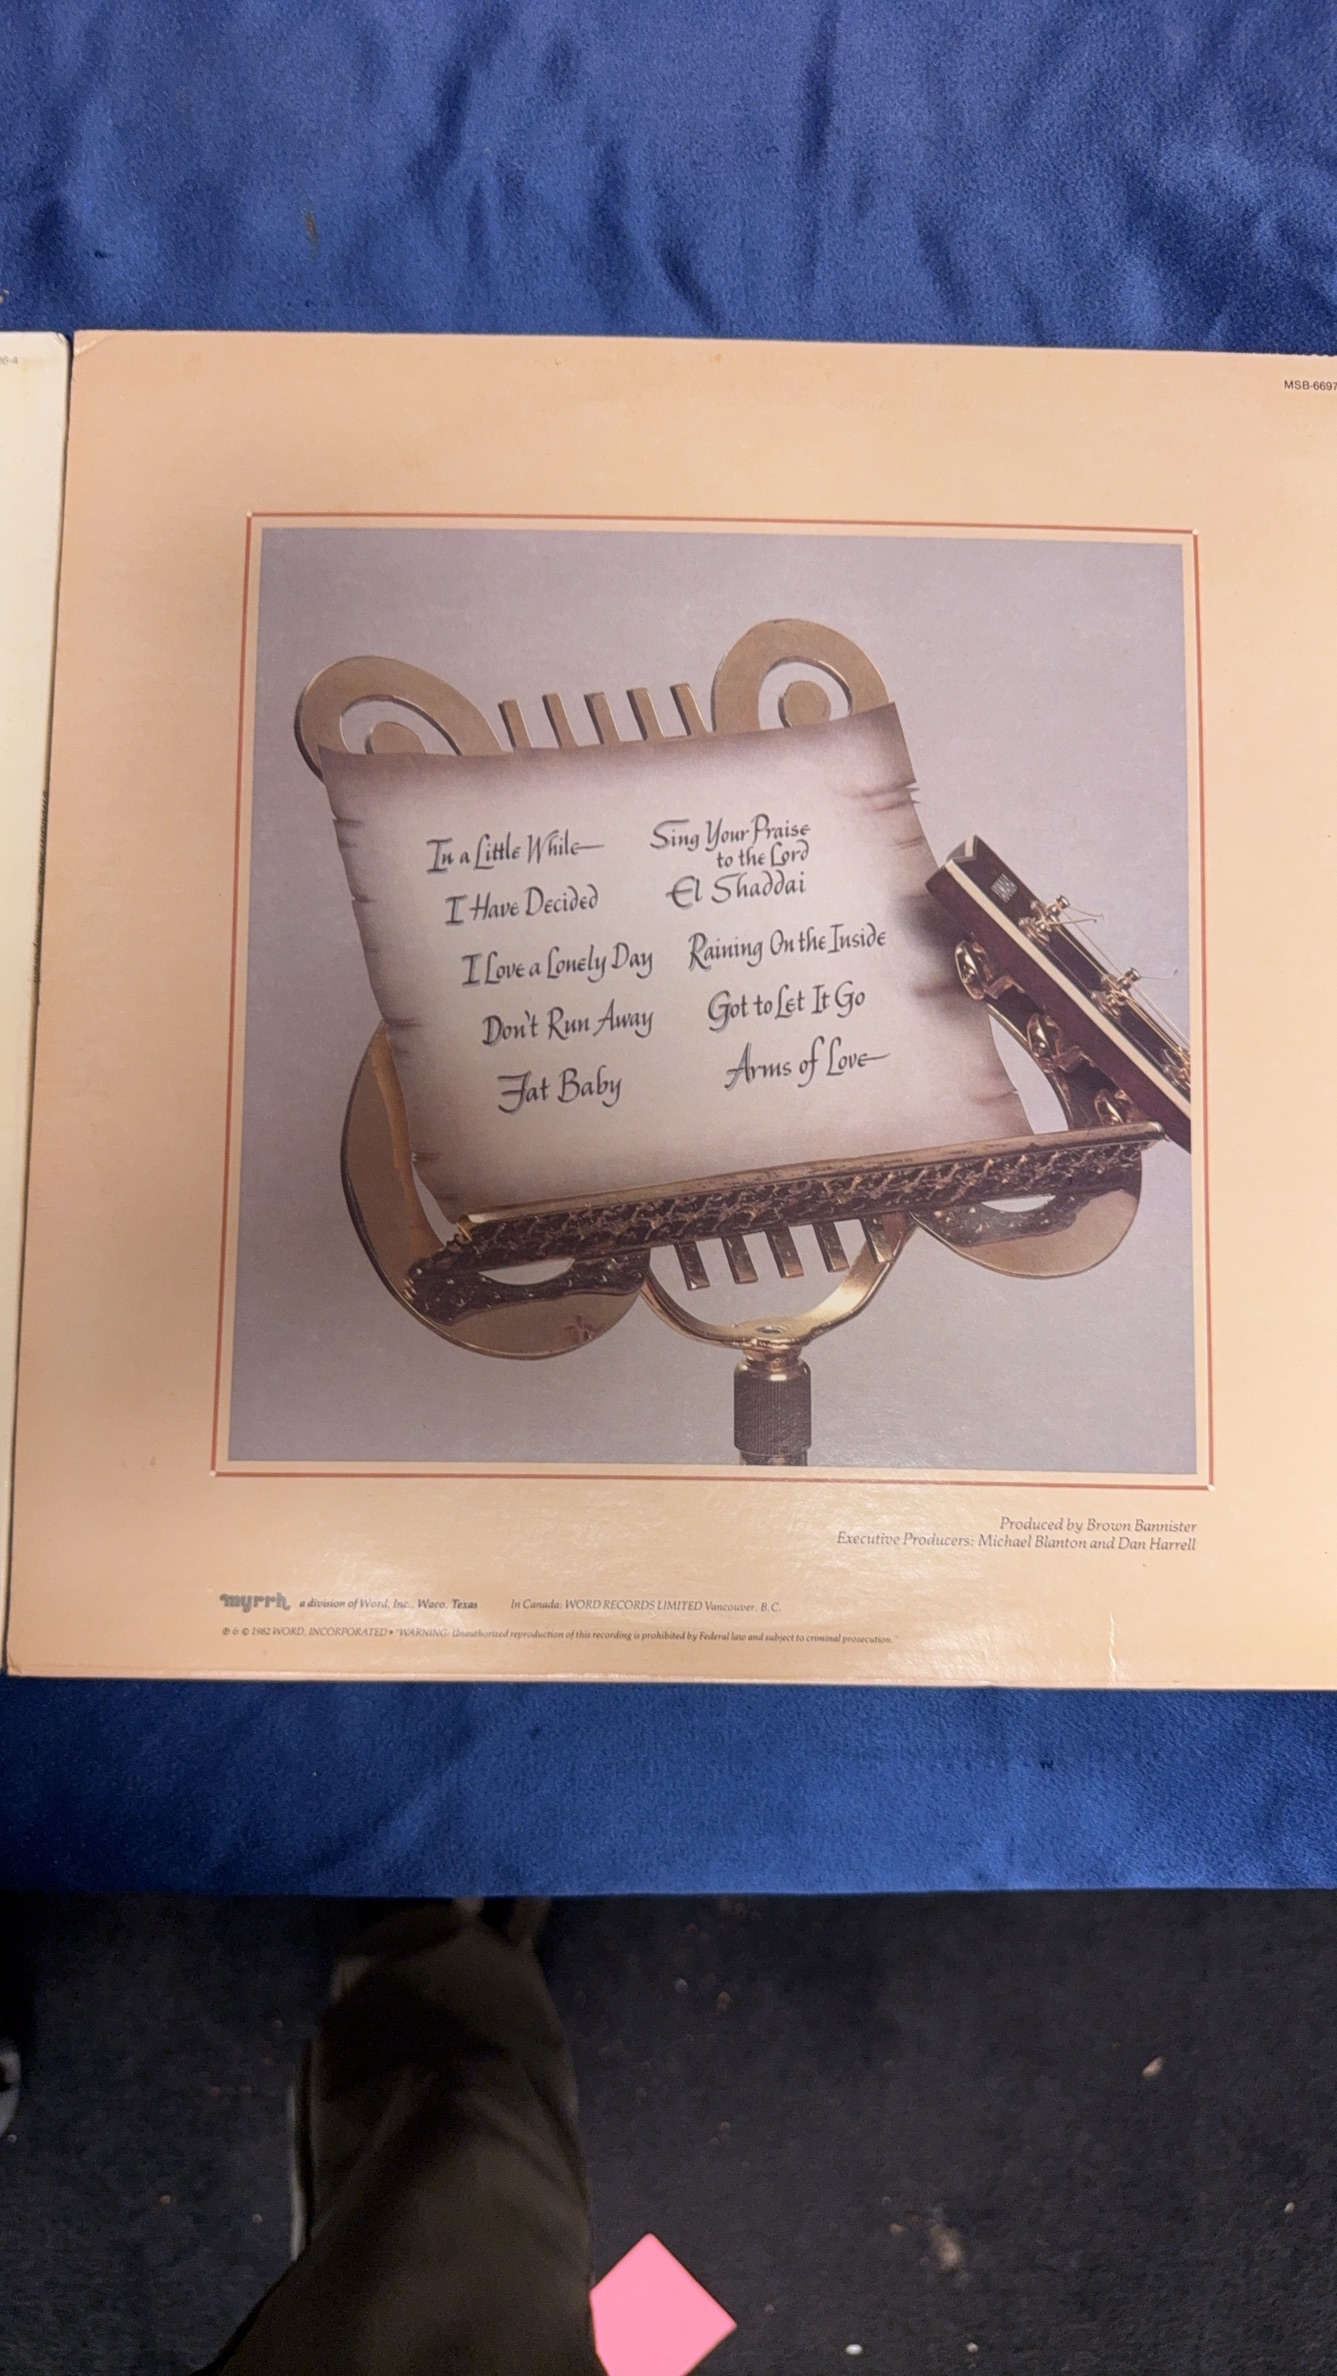 26-4
MSB-6697
In a Little While
I Have Decided
I Love a Lonely Day
Don't Run Away
Fat Baby
Sing Your Praise
to the Lord
El Shaddai
Raining On the Inside
Got to Let It Go
Arms of Love
Produced by Brown Bannister
Executive Producers: Michael Blanton and Dan Harrell
myrrh a division of Word, Inc., Waco, Texas In Canada: WORD RECORDS LIMITED Vancouver, B.C.
℗ & © 1982 WORD, INCORPORATED • "WARNING: Unauthorized reproduction of this recording is prohibited by Federal law and subject to criminal prosecution."